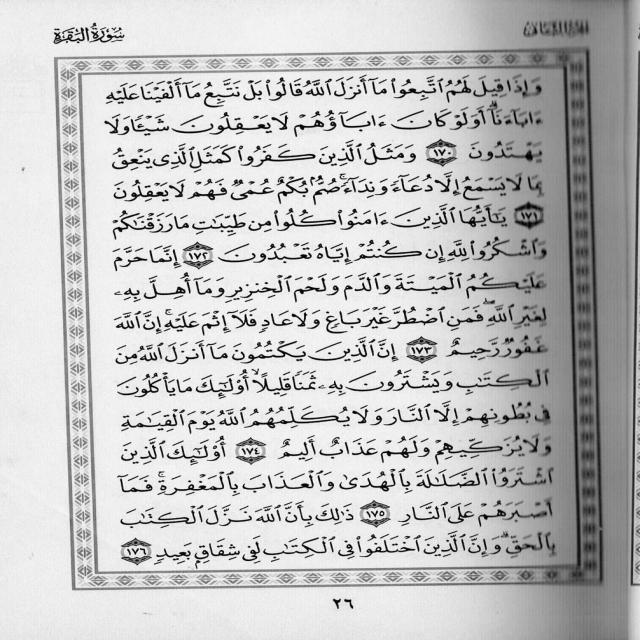 سُورَةُ الْبَقَرَةِ
وَإِذَا قِيلَ لَهُمُ اتَّبِعُوا مَا أَنزَلَ اللَّهُ قَالُوا بَلْ نَتَّبِعُ مَا أَلْفَيْنَا عَلَيْهِ
ءَابَاءَنَا أَوَلَوْ كَانَ ءَابَاؤُهُمْ لَا يَعْقِلُونَ شَيْئًا وَلَا
يَهْتَدُونَ ١٧٠ وَمَثَلُ الَّذِينَ كَفَرُوا كَمَثَلِ الَّذِي يَنْعِقُ
بِمَا لَا يَسْمَعُ إِلَّا دُعَاءً وَنِدَاءً صُمٌّ بُكْمٌ عُمْيٌ فَهُمْ لَا يَعْقِلُونَ
١٧١ يَاأَيُّهَا الَّذِينَ ءَامَنُوا كُلُوا مِن طَيِّبَاتِ مَا رَزَقْنَاكُمْ
وَاشْكُرُوا لِلَّهِ إِن كُنتُمْ إِيَّاهُ تَعْبُدُونَ ١٧٢ إِنَّمَا حَرَّمَ
عَلَيْكُمُ الْمَيْتَةَ وَالدَّمَ وَلَحْمَ الْخِنزِيرِ وَمَا أُهِلَّ بِهِ
لِغَيْرِ اللَّهِ فَمَنِ اضْطُرَّ غَيْرَ بَاغٍ وَلَا عَادٍ فَلَا إِثْمَ عَلَيْهِ إِنَّ اللَّهَ
غَفُورٌ رَّحِيمٌ ١٧٣ إِنَّ الَّذِينَ يَكْتُمُونَ مَا أَنزَلَ اللَّهُ مِنَ
الْكِتَابِ وَيَشْتَرُونَ بِهِ ثَمَنًا قَلِيلًا أُوْلَئِكَ مَا يَأْكُلُونَ
فِي بُطُونِهِمْ إِلَّا النَّارَ وَلَا يُكَلِّمُهُمُ اللَّهُ يَوْمَ الْقِيَامَةِ
وَلَا يُزَكِّيهِمْ وَلَهُمْ عَذَابٌ أَلِيمٌ ١٧٤ أُوْلَئِكَ الَّذِينَ
اشْتَرَوُا الضَّلَالَةَ بِالْهُدَى وَالْعَذَابَ بِالْمَغْفِرَةِ فَمَا
أَصْبَرَهُمْ عَلَى النَّارِ ١٧٥ ذَلِكَ بِأَنَّ اللَّهَ نَزَّلَ الْكِتَابَ
بِالْحَقِّ وَإِنَّ الَّذِينَ اخْتَلَفُوا فِي الْكِتَابِ لَفِي شِقَاقٍ بَعِيدٍ ١٧٦
٢٦